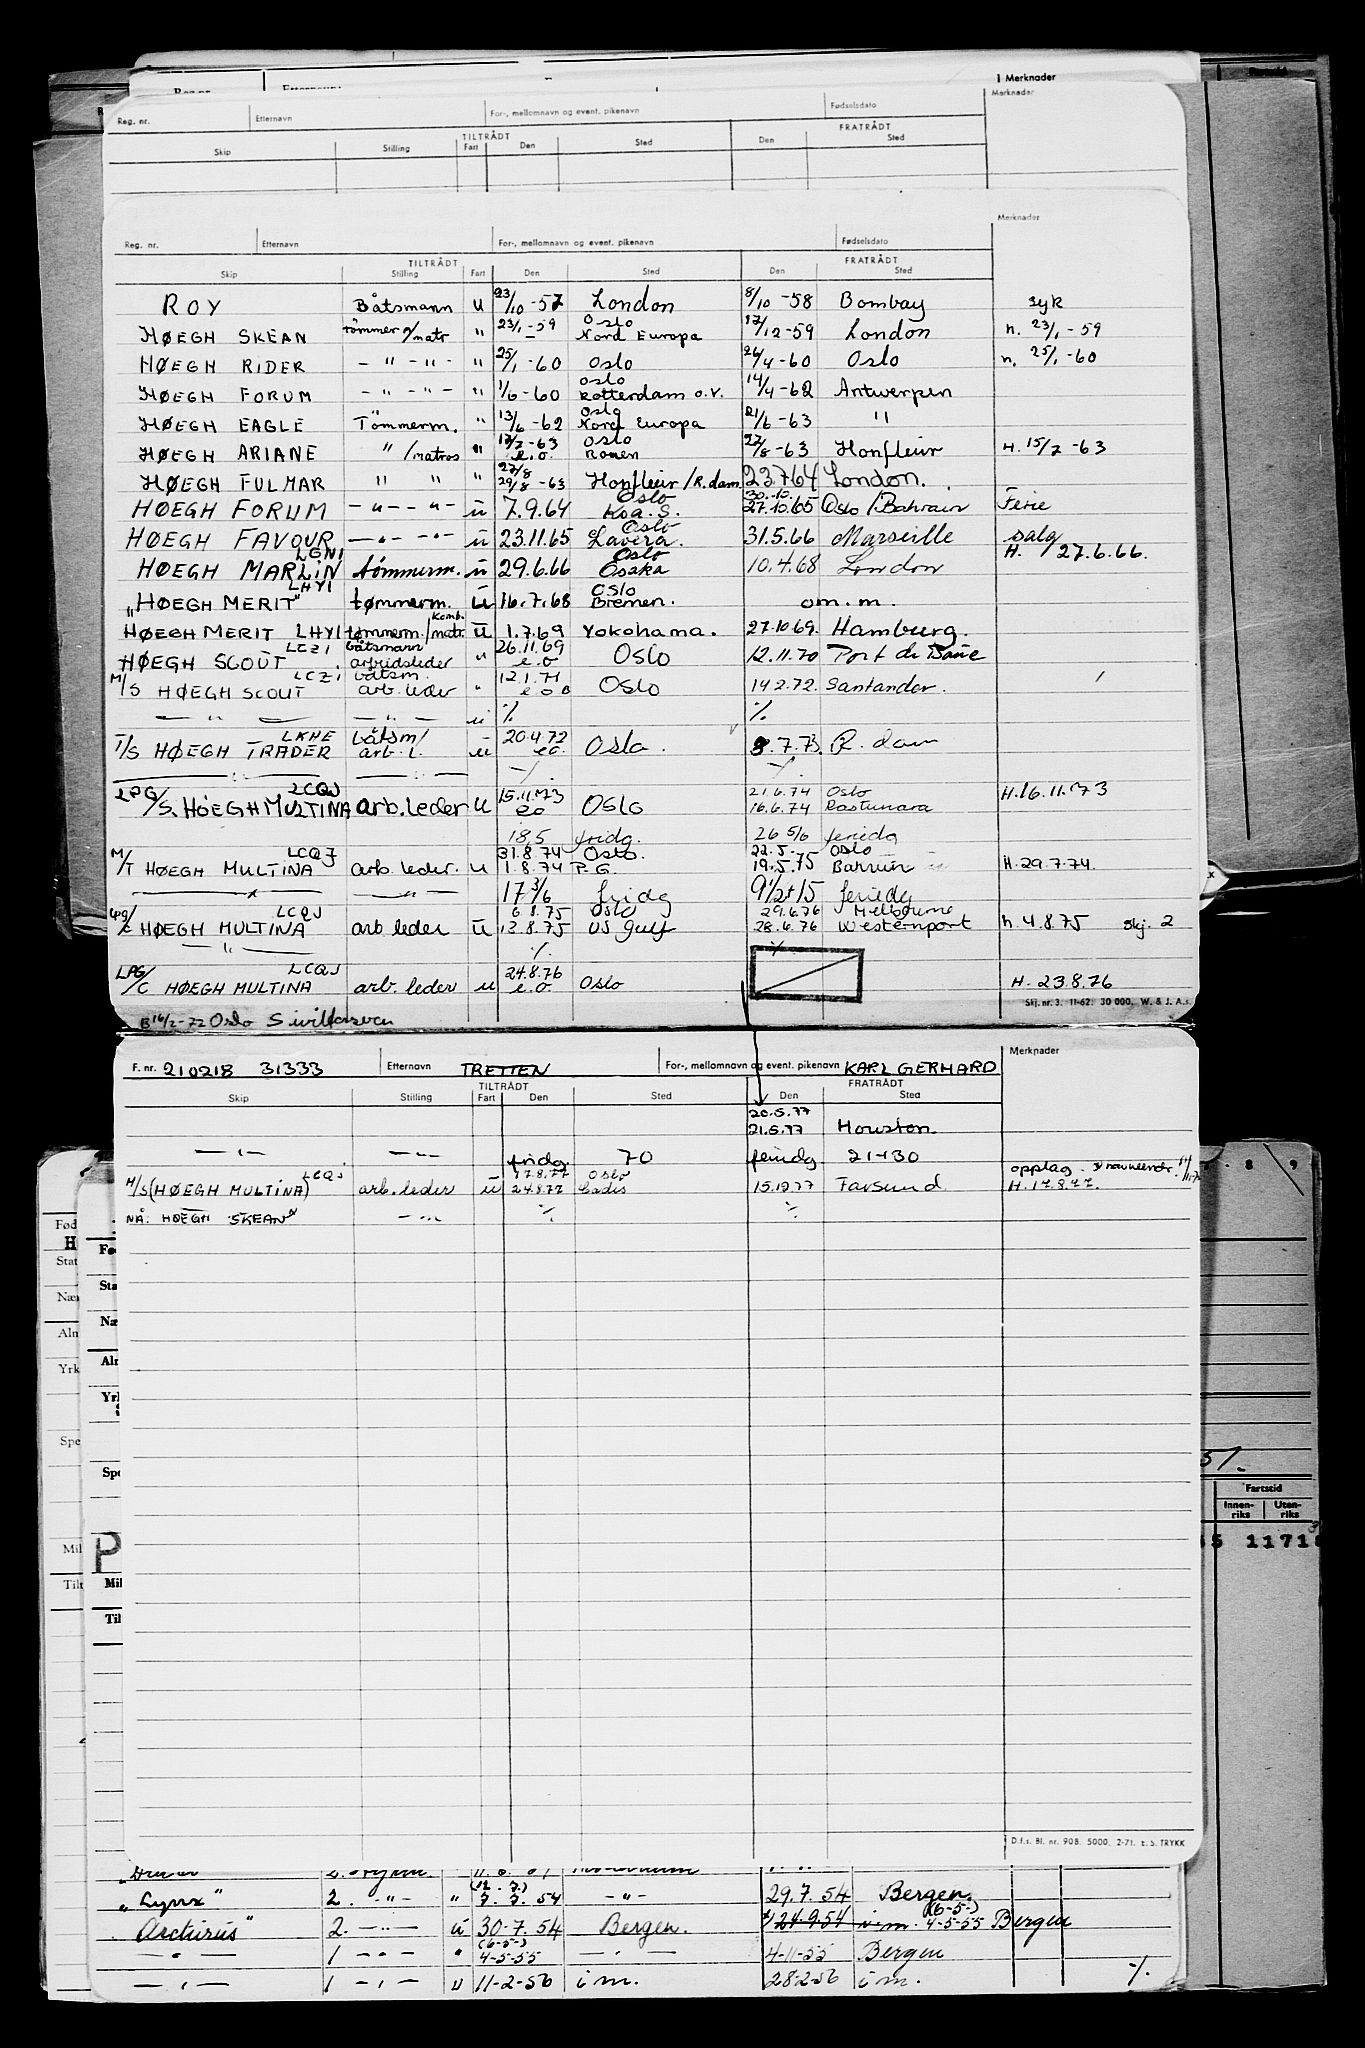 Merknader
Merknader
Reg. nr. Etternavn For-, mellomnavn og event. pikenavn Fødselsdato
TILTRÅDT FRATRÅDT
Skip Stilling Fart Den Sted Den Sted
Merknader
Reg. nr. Etternavn For-, mellomnavn og event. pikenavn Fødselsdato
TILTRÅDT FRATRÅDT
Skip Stilling Fart Den Sted Den Sted
ROY Båtsmann u 23/10-57 London 8/10-58 Bombay syk
HØEGH SKEAN tömmer o/matr " 23/1-59 Oslo Nord Europa 17/12-59 London n. 23/1-59
HØEGH RIDER - " - " - " 25/1-60 Oslo 26/4-60 Oslo n. 25/1-60
HØEGH FORUM - " - " - " 1/6-60 Oslo Rotterdam o.v. 14/4-62 Antwerpen
HØEGH EAGLE Tömmerm. " 13/6-62 Oslo Nord Europa 21/6-63 "
HØEGH ARIANE " /matros " 17/7-63 e.o. Oslo Rouen 27/8-63 Honfleur H. 15/7-63
HØEGH FULMAR " " " 27/8 29/8-63 Honfleur/R.dam 23764 London.
HØEGH FORUM -"- -"- ü 7.9.64 Oslo Koa.S. 30.-10. 27.10.65 Oslo/Bahrain Ferie
HØEGH FAVOUR -"- -"- ü 23.11.65 Oslo Lavera. 31.5.66 Marseille salg
HØEGH MARLIN LGNI tömmerm. ü 29.6.66 Oslo Osaka 10.4.68 London H. 27.6.66.
"HØEGH MERIT" LHYI tømmerm. ü 16.7.68 Oslo Bremen. om.m.
HØEGH MERIT LHYI tømmerm./matr. Komb. ü 1.7.69 Yokohama. 27.10.69. Hamburg.
HØEGH SCOUT LCZI båtsmann arbeidsleder " 26.11.69 e.o Oslo 12.11.70 Port de Bouc
M/S HØEGH SCOUT LCZI båtsm. arb.leder " 12.1.71 e o B Oslo 14.2.72. Santander.
— " — — " — ü % %
T/S HØEGH TRADER LKHE båtsm/ arb. l. ü 20.4.72 eo. Oslo. 8.7.73. R. dam
LPG/S. HØEGH MULTINA LCQJ arb.leder u 15.11.73 eo Oslo 21.6.74 Oslo 16.6.74 Rastunara H.16.11.73
18,5 fridg. 26 5/6 feriedg
M/T HØEGH MULTINA LCQJ arb. leder. u 31.8.74 Oslo. 1.8.74 P.G. 22.5.- Oslo 19.5.75 H.29.7.74.
17 3/6 fridg 9 1/2+15 feriedg
LPG/C HØEGH MULTINA LCQJ arb leder ü 6.8.75 Oslo 12.8.75 US Gulf 29.6.76 Melbourne 28.6.76 Westernport h. 4.8.75 skj. 2
— " — % %
LPG/C HØEGH MULTINA LCQJ arb. leder u 24.8.76 e.o. Oslo H. 23.8.76
Skj. nr. 3. 11-62. 30 000. W. & J. A.s
B 16/2-72 Oslo Sivilforsvar
F. nr. 210218 31333 Etternavn TRETTEN For-, mellomnavn og event. pikenavn KARL GERHARD Merknader
TILTRÅDT FRATRÅDT
Skip Stilling Fart Den Sted Den Sted
20.5.77
21.5.77 Houston
— " — — " — fridg 70 feriedg 21+30
M/S (HØEGH MULTINA) LCQJ arb.leder ü 17.8.77 Oslo 24.8.77 Cadis 15.12.77 Farsund opplag. H.17.8.77.
NÅ: HØEGH SKEAN" — " — % %
D.f.s. Bl. nr. 908. 5000. 2-71. E.S. TRYKK
"Lynx" 2. -"- " (12.7.) 7.7.54 -"- 29.7.54 Bergen.
Arcturus" 2. -"- ü 30.7.54 Bergen. 24.9.54 i.m. (6-5-) 4-5-55 Bergen
— " — 1 -"- " (6-5-) 4-5-55 — " — 4-11-55 Bergen
— " — 1 -"- " 11-2-56 i m. 28-2-56 i m. %
Fød
H
Stat
Nær
Aln
Yrk
Spe
Mil
Tilt
Fø
Sta
Næ
Alr
Yrl
Spe
P
Mil
Til
8 9
5/.
Fartstid
Innen-riks Uten-riks
5 1171